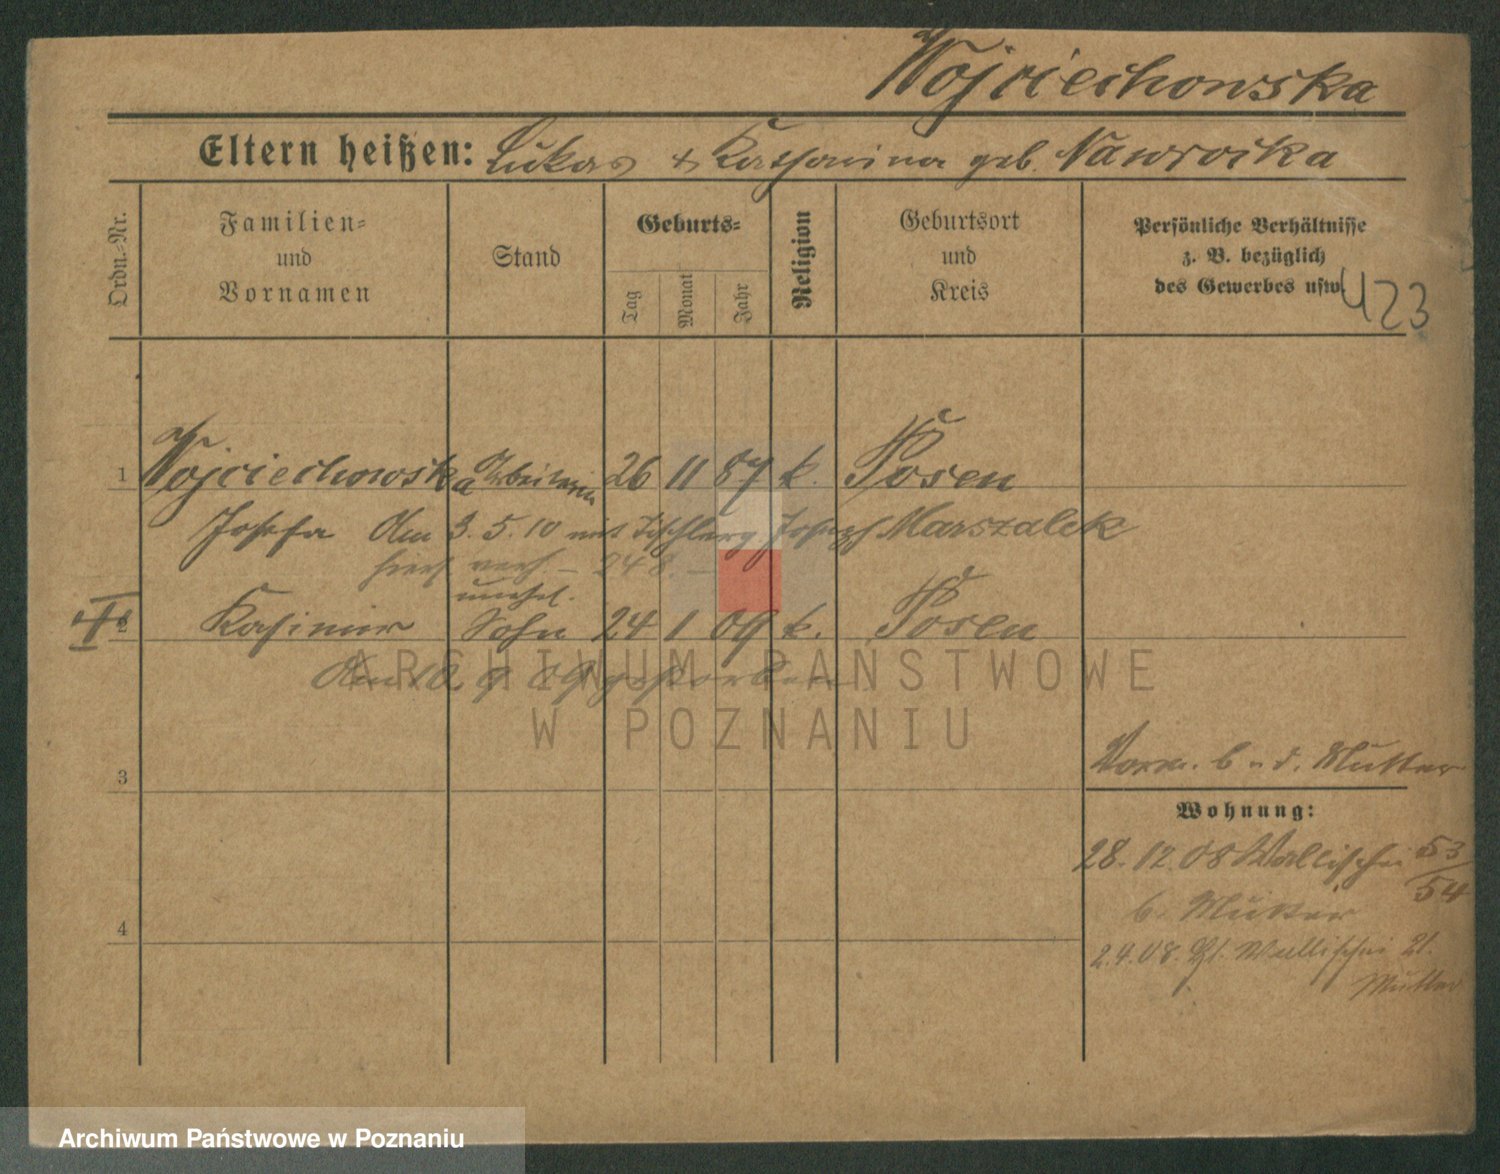 Wojciechowska
Eltern heißen: Lukas + Katharina geb. Nawrocka
Ordn.-Nr.
Familien-
und
Vornamen
Stand
Geburts-
Tag
Monat
Jahr
Religion
Geburtsort
und
Kreis
Persönliche Verhältnisse
z. B. bezüglich
des Gewerbes usw.
423
1 Wojciechowska Arbeiterin 26 11 87 k. Posen
Josefa Am 3. 5. 10 mit Tischlerg. Joseph Marszalek
hier verh. – 248. –
unehel.
2 Kasimir Sohn 24 1 09 k. Posen
Am 10. 9 09 gestorben
ARCHIWUM PAŃSTWOWE
W POZNANIU
3
Vorm. b. d. Mutter
Wohnung:
28. 12. 08 Wallischei 53/54
b. Mutter
4
2. 4. 08. Wallischei 21.
Mutter
Archiwum Państwowe w Poznaniu